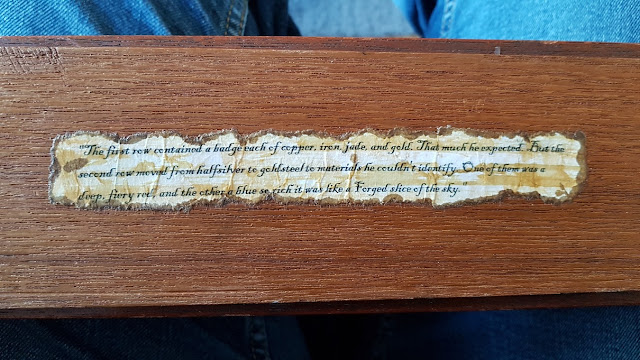 "The first row contained a badge each of copper, iron, jade, and gold. That much he expected. But the
second row moved from halfsilver to goldsteel to materials he couldn't identify. One of them was a
deep, fiery red, and the other a blue so rich it was like a Forged slice of the sky."